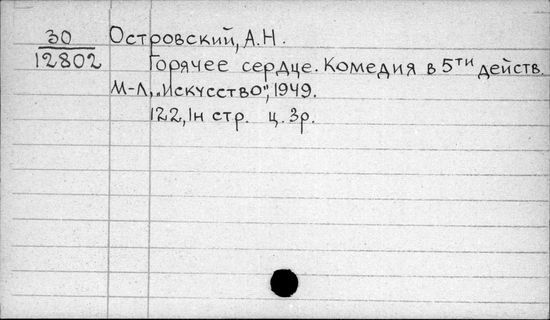 30
12802
Островский, А.Н.
Горячее сердце. Комедия в 5ти действ.
М-Л, „Искусство", 1949.
122, 1н стр. ц. 3р.